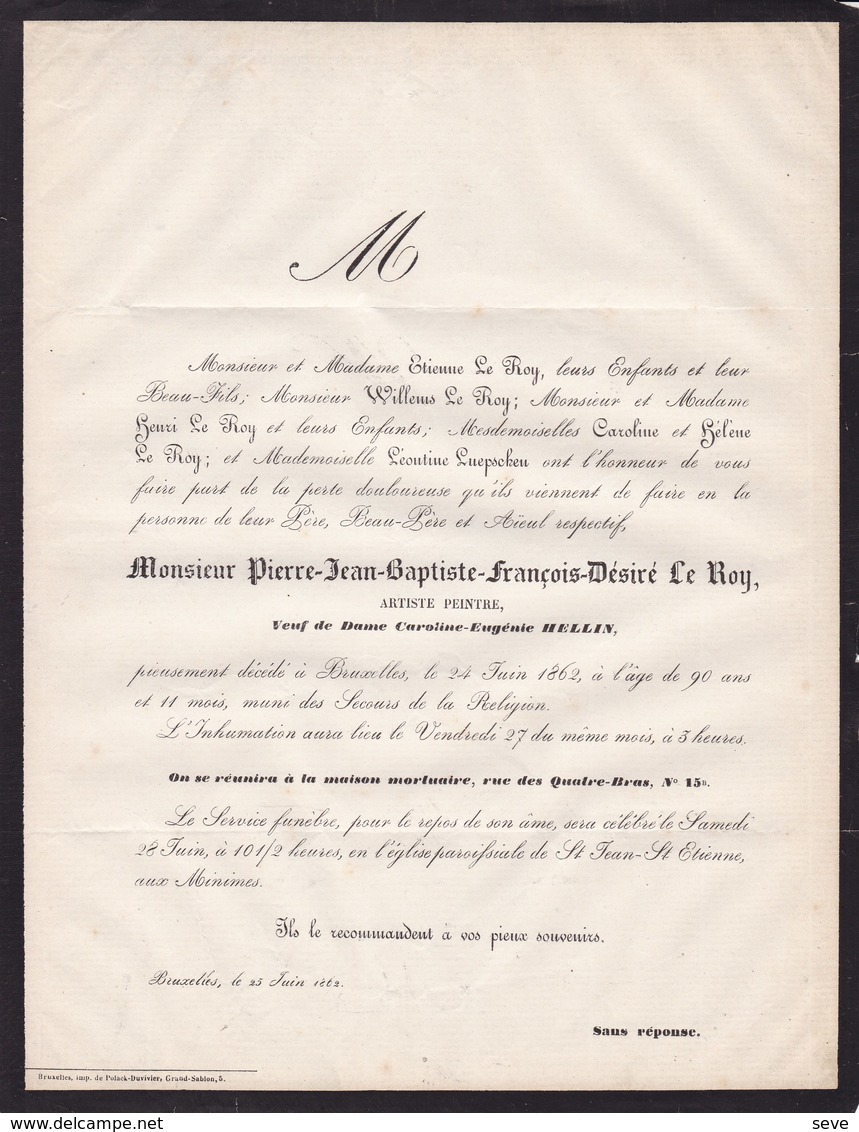 M
Monsieur et Madame Etienne Le Roy, leurs Enfants et leur
Beau-Fils; Monsieur Willems Le Roy; Monsieur et Madame
Henri Le Roy et leurs Enfants; Mesdemoiselles Caroline et Hélène
Le Roy; et Mademoiselle Léontine Luepscken ont l'honneur de vous
faire part de la perte douloureuse qu'ils viennent de faire en la
personne de leur Père, Beau-Père et Aïeul respectif,
Monsieur Pierre-Jean-Baptiste-François-Désiré Le Roy,
ARTISTE PEINTRE,
Veuf de Dame Caroline-Eugénie HELLIN,
pieusement décédé à Bruxelles, le 24 Juin 1862, à l'âge de 90 ans
et 11 mois, muni des Secours de la Religion.
L'Inhumation aura lieu le Vendredi 27 du même mois, à 3 heures.
On se réunira à la maison mortuaire, rue des Quatre-Bras, No 15B.
Le Service funèbre, pour le repos de son âme, sera célébré le Samedi
28 Juin, à 10 1/2 heures, en l'église paroissiale de St Jean-St Etienne,
aux Minimes.
Ils le recommandent à vos pieux souvenirs.
Bruxelles, le 25 Juin 1862.
Sans réponse.
Bruxelles, imp. de Polack-Duvivier, Grand-Sablon, 5.
delcampe.net
seve